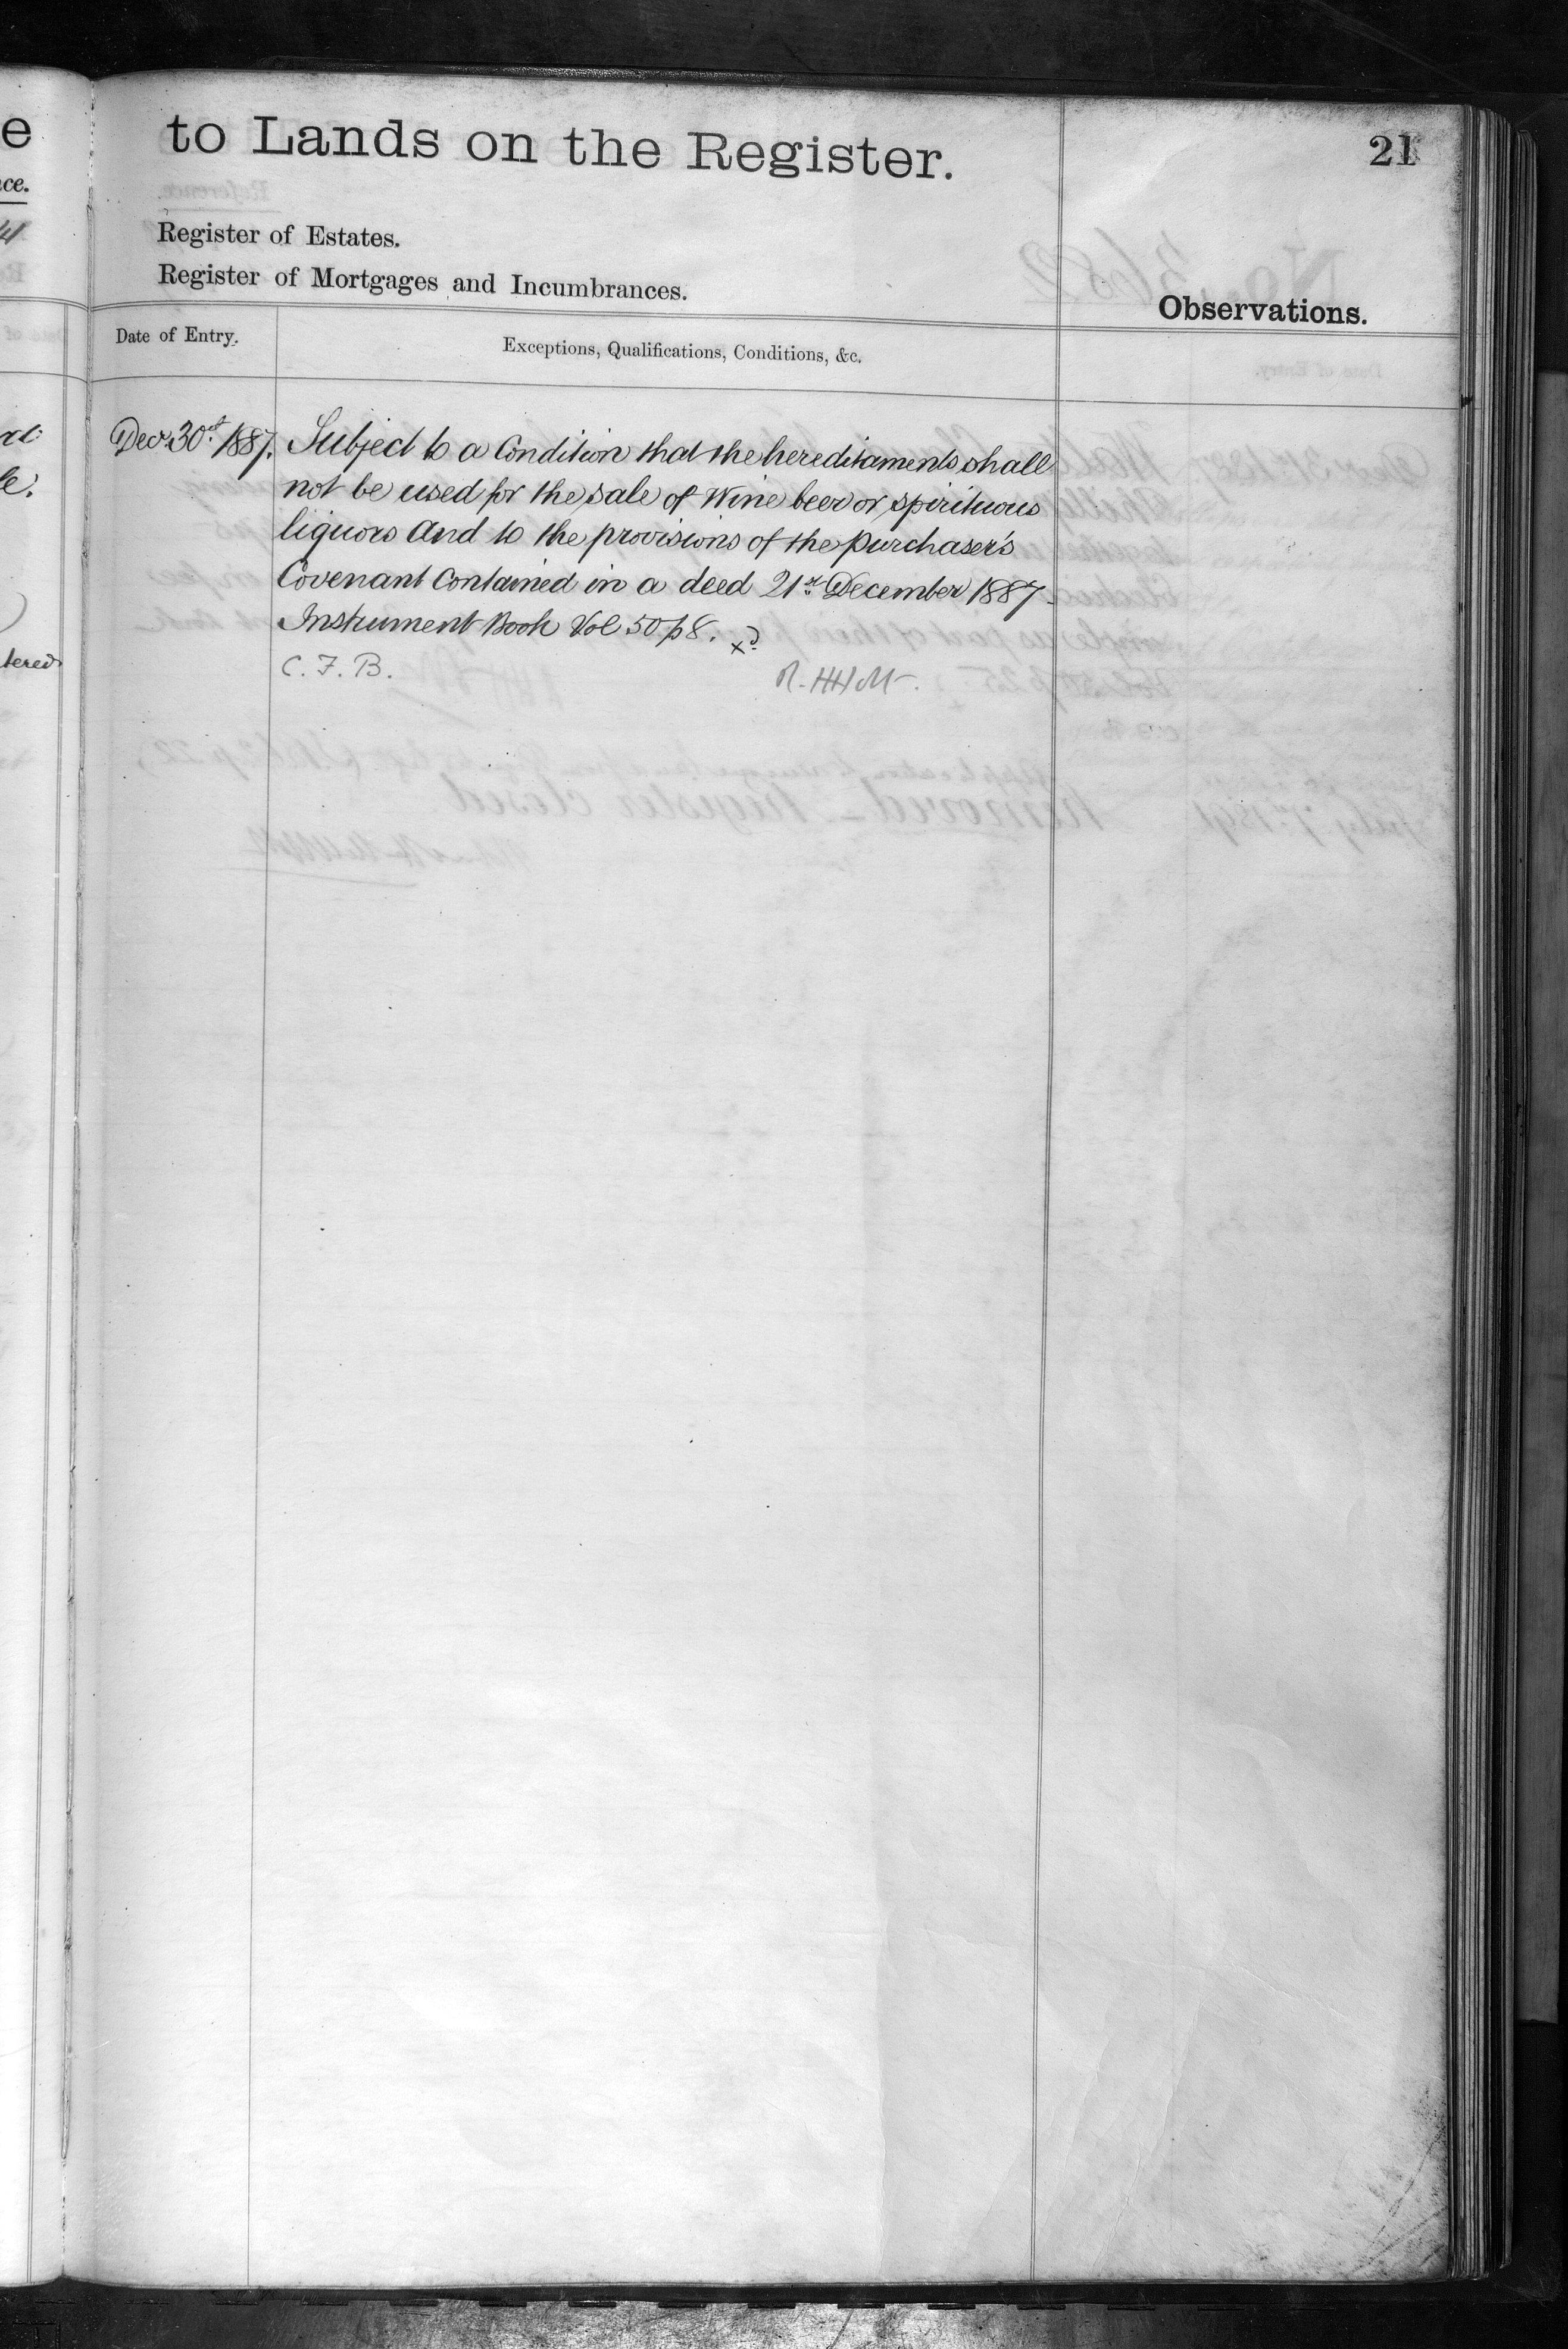 to Lands on the Register.
21
Register of Estates.
Register of Mortgages and Incumbrances.
Observations.
Date of Entry.
Exceptions, Qualifications, Conditions, &c.
Decr 30st 1887. Subject to a Condition that the hereditaments shall
not be used for the sale of Wine beer or spirituous
liquors and to the provisions of the purchaser's
Covenant Contained in a deed 21st December 1887
Instrument Book Vol 50 p 8.
C. F. B.